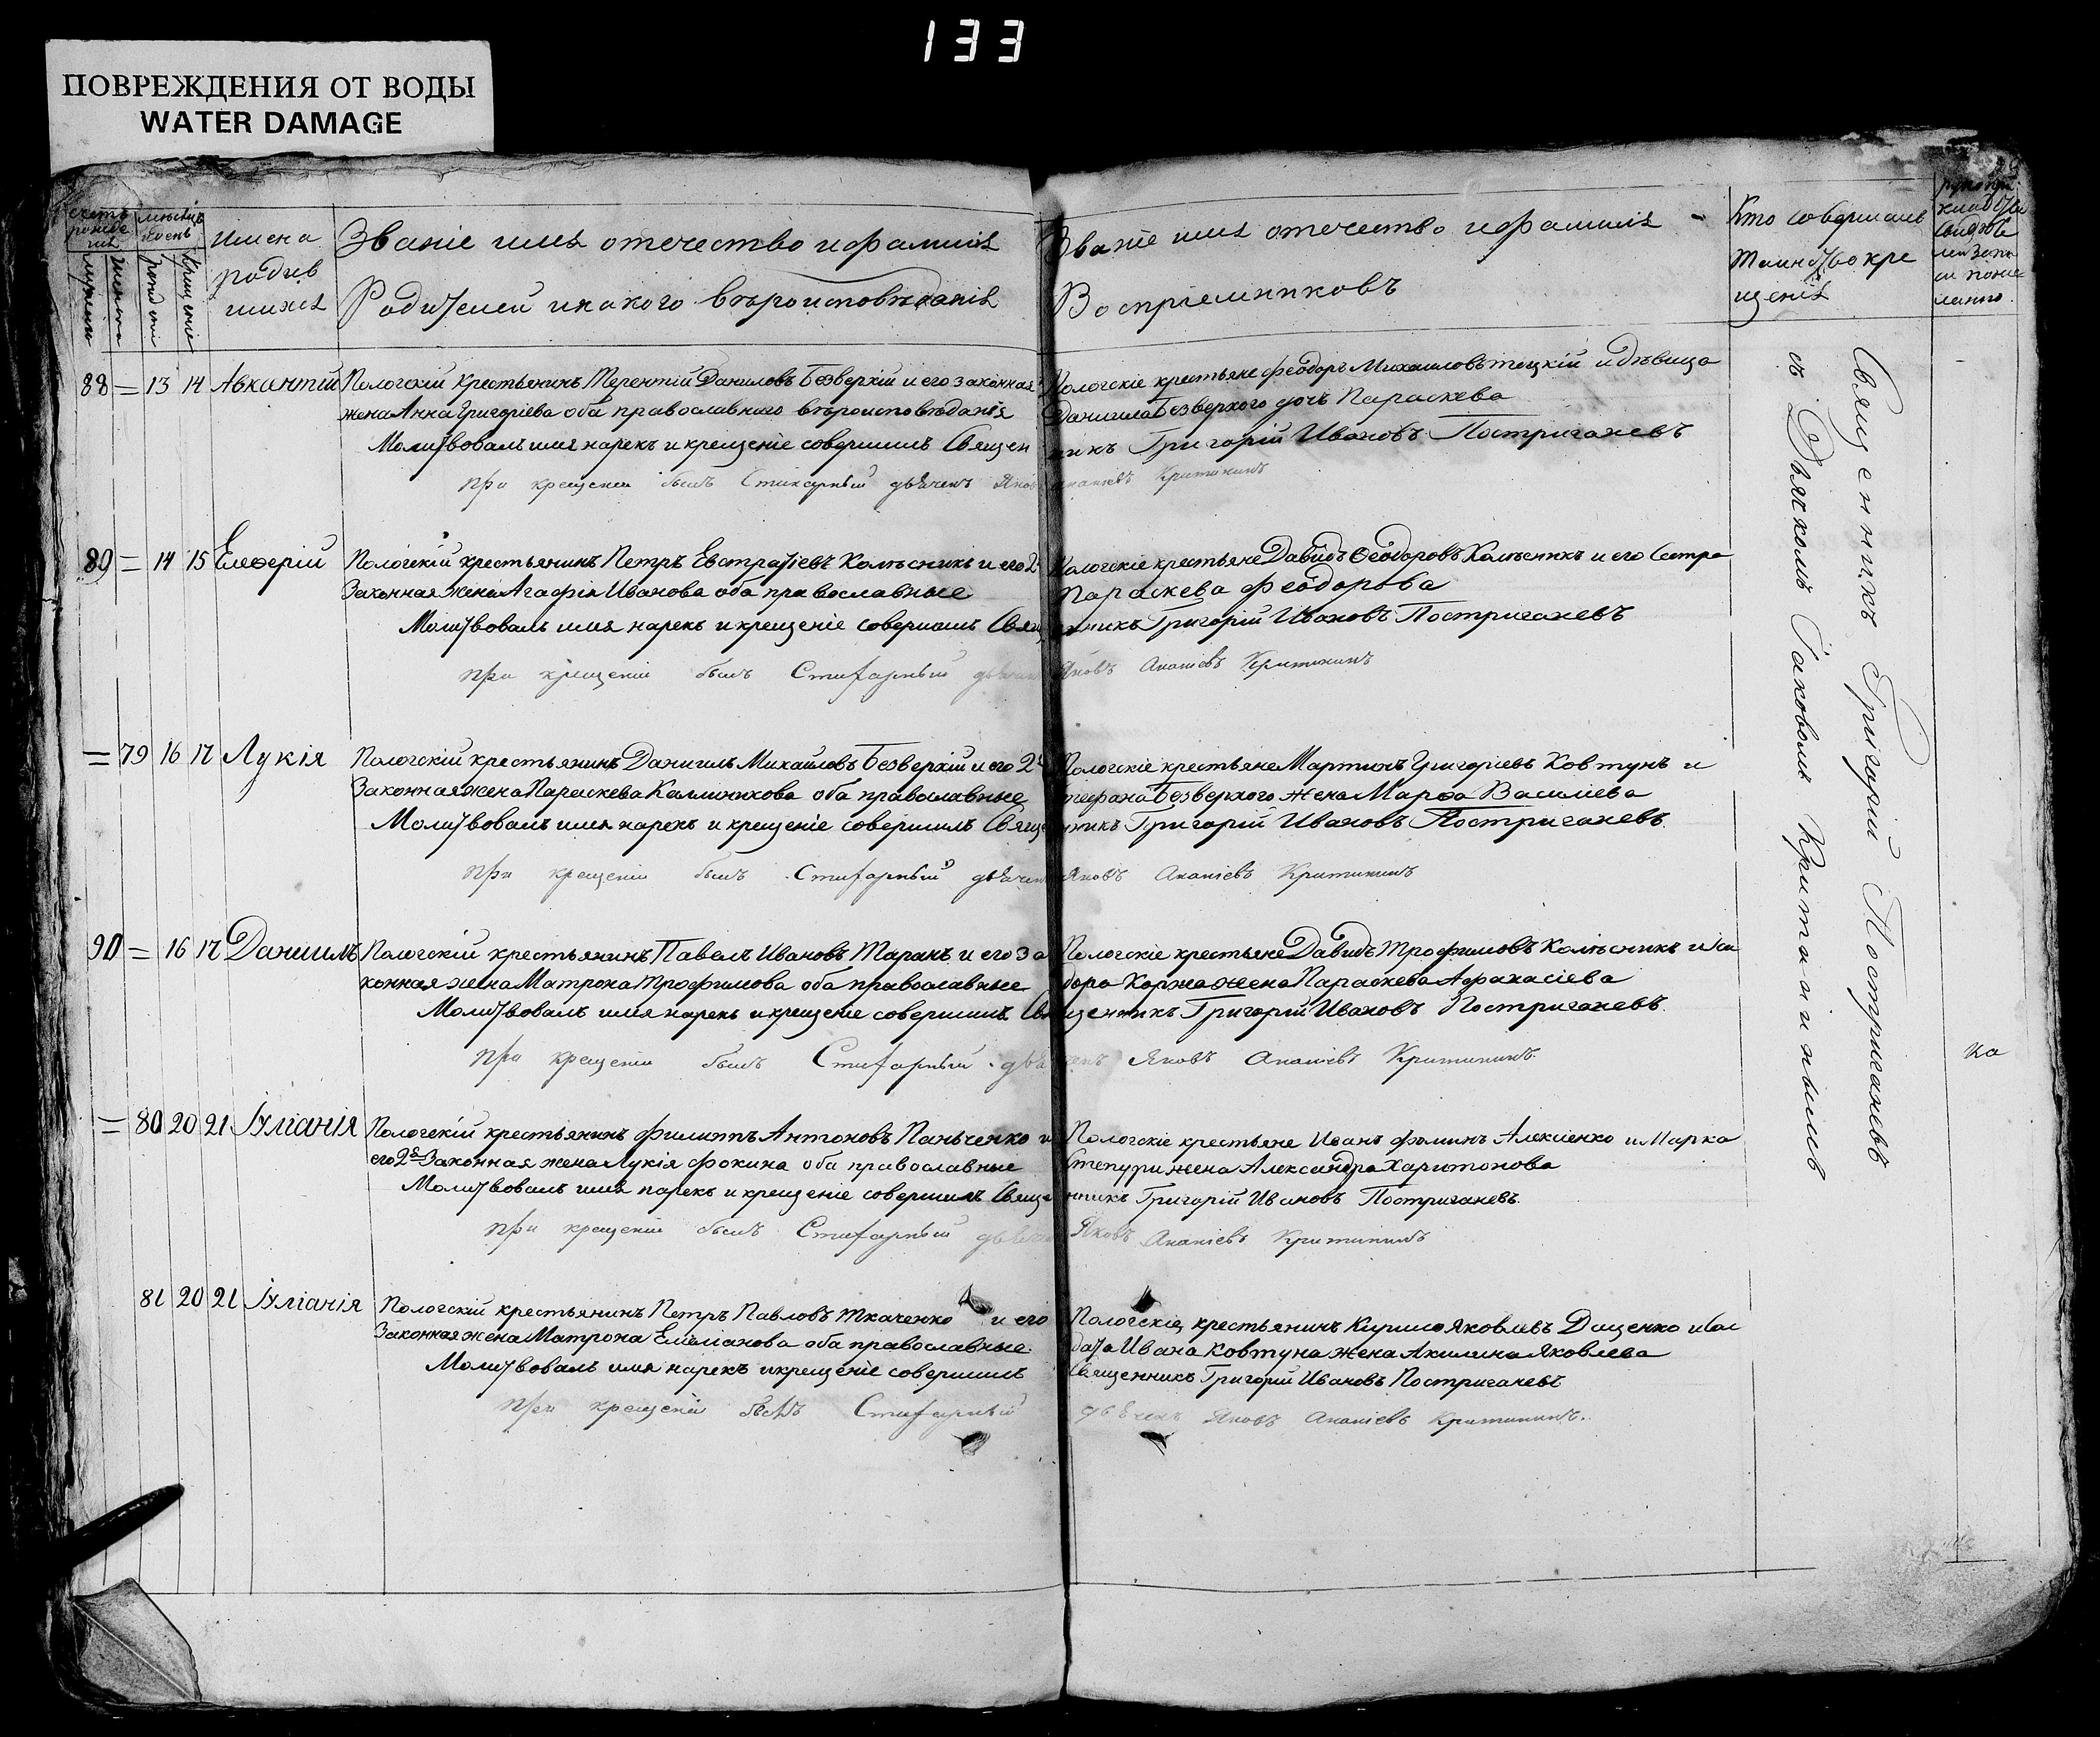 133
ПОВРЕЖДЕНИЯ ОТ ВОДЫ
WATER DAMAGE
мѣсяцъ
день
Имена
родив
шихся
Званіе имя отечество и фамилія
Родителей и какого вѣроисповѣданія
Званіе имя отечество и фамилія
Воспріемниковъ
Кто совершалъ
таинство кре
щенія
88 = 13 14 Авкентій Пологскій крестьянинъ Терентій Даниловъ Безверхій и его законная
жена Анна Григоріева оба православнаго вѣроисповѣданія
Молитвовалъ имя нарекъ и крещеніе совершилъ Священ
при крещеніи былъ Стихарный дьячекъ Яковъ
Пологскіе крестьяне Феодоръ Михаиловъ и дѣвица
Даниила Безверхого дочь Параскева
никъ Григорій Ивановъ Постригачевъ
Ананіевъ Критининъ
89 = 14 15 Елеѳерій Пологскій крестьянинъ Петръ Евстратіевъ Колѣсникъ и его 2я
Законная жена Агафія Иванова оба православные
Молитвовалъ имя нарекъ и крещеніе совершилъ Свящ
при крещеніи былъ Стихарный дьячекъ
Пологскіе крестьяне Давидъ Ѳеодоровъ Колѣсникъ и его Сестра
Параскева Феодорова
енникъ Григорій Ивановъ Постригачевъ
Яковъ Ананіевъ Критининъ
= 79 16 17 Лукія Пологскій крестьянинъ Даниилъ Михайловъ Безверхій и его 2я
Законная жена Параскева Каллиникова оба православные
Молитвовалъ имя нарекъ и крещеніе совершилъ Свяще
при крещеніи былъ Стихарный дьячекъ
Пологскіе крестьяне Мартинъ Григоріевъ Ковтунъ и
Стефана Безверхого жена Марѳа Василіева
нникъ Григорій Ивановъ Постригачевъ.
Яковъ Ананіевъ Критининъ
90 = 16 17 Даніилъ Пологскій крестьянинъ Павелъ Ивановъ Таранъ и его за
конная жена Матрона Трофимова оба православные
Молитвовалъ имя нарекъ и крещеніе совершилъ Свя
при крещеніи былъ Стихарный дья
Пологскіе крестьяне Давидъ Трофимовъ Колѣсникъ и Иси
дора Коржа жена Параскева Афанасіева
щенникъ Григорій Ивановъ Постригачевъ.
чекъ Яковъ Ананіевъ Критининъ.
= 80 20 21 Іуліанія Пологскій крестьянинъ Филиппъ Антоновъ Панченко и
его 2я Законная жена Лукія Фокина оба православные
Молитвовалъ имя нарекъ и крещеніе совершилъ Свяще
при крещеніи былъ Стихарный дьячекъ
Пологскіе крестьяне Иванъ Фоминъ Алексіенко и Марка
Степури жена Александра Харитонова
нникъ Григорій Ивановъ Постригачевъ.
Яковъ Ананіевъ Критининъ
81 20 21 Іуліанія Пологскій крестьянинъ Петръ Павловъ Ткаченко и его
Законная жена Матрона Емеліанова оба православные.
Молитвовалъ имя нарекъ и крещеніе совершилъ
при крещеніи былъ Стихарный
Пологскіе крестьянинъ Кирило Яковлевъ Даценко и Сол
дата Ивана Ковтуна жена Акилина Яковлева
Священникъ Григорій Ивановъ Постригачевъ
дьячекъ Яковъ Ананіевъ Критининъ.
Священникъ Григорій Постригачевъ
съ Дьячкомъ Іаковомъ Критининымъ